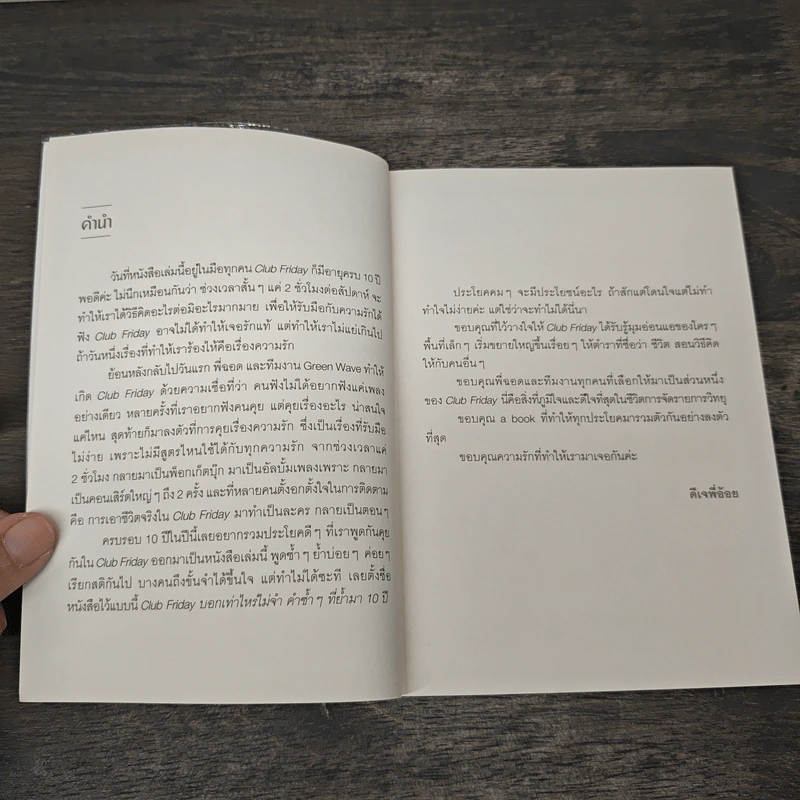 คำนำ
วันที่หนังสือเล่มนี้อยู่ในมือทุกคน Club Friday ก็มีอายุครบ 10 ปี
พอดีค่ะ ไม่นึกเหมือนกันว่า ช่วงเวลาสั้น ๆ แค่ 2 ชั่วโมงต่อสัปดาห์ จะ
ทำให้เราได้วิธีคิดอะไรต่อมิอะไรมากมาย เพื่อให้รับมือกับความรักได้
ฟัง Club Friday อาจไม่ได้ทำให้เจอรักแท้ แต่ทำให้เราไม่แย่เกินไป
ถ้าวันหนึ่งเรื่องที่ทำให้เราร้องไห้คือเรื่องความรัก
ย้อนหลังกลับไปวันแรก พี่ฉอด และทีมงาน Green Wave ทำให้
เกิด Club Friday ด้วยความเชื่อที่ว่า คนฟังไม่ได้อยากฟังแค่เพลง
อย่างเดียว หลายครั้งที่เราอยากฟังคนคุย แต่คุยเรื่องอะไร น่าสนใจ
แค่ไหน สุดท้ายก็มาลงตัวที่การคุยเรื่องความรัก ซึ่งเป็นเรื่องที่รับมือ
ไม่ง่าย เพราะไม่มีสูตรไหนใช้ได้กับทุกความรัก จากช่วงเวลาแค่
2 ชั่วโมง กลายมาเป็นพ็อกเก็ตบุ๊ก มาเป็นอัลบั้มเพลงเพราะ กลายมา
เป็นคอนเสิร์ตใหญ่ ๆ ถึง 2 ครั้ง และที่หลายคนตั้งอกตั้งใจในการติดตาม
คือ การเอาชีวิตจริงใน Club Friday มาทำเป็นละคร กลายเป็นตอน ๆ
ครบรอบ 10 ปีในปีนี้เลยอยากรวมประโยคดี ๆ ที่เราพูดกันคุย
กันใน Club Friday ออกมาเป็นหนังสือเล่มนี้ พูดซ้ำ ๆ ย้ำบ่อย ๆ ค่อย ๆ
เรียกสติกันไป บางคนถึงขั้นจำได้ขึ้นใจ แต่ทำไม่ได้ซะที เลยตั้งชื่อ
หนังสือไว้แบบนี้ Club Friday บอกเท่าไหร่ไม่จำ คำซ้ำ ๆ ที่ย้ำมา 10 ปี
ประโยคคม ๆ จะมีประโยชน์อะไร ถ้าสักแต่โดนใจแต่ไม่ทำ
ทำใจไม่ง่ายค่ะ แต่ใช่ว่าจะทำไม่ได้นี่นา
ขอบคุณที่ไว้วางใจให้ Club Friday ได้รับรู้มุมอ่อนแอของใคร ๆ
พื้นที่เล็ก ๆ เริ่มขยายใหญ่ขึ้นเรื่อย ๆ ให้ตำราที่ชื่อว่า ชีวิต สอนวิธีคิด
ให้กับคนอื่น ๆ
ขอบคุณพี่ฉอดและทีมงานทุกคนที่เลือกให้มาเป็นส่วนหนึ่ง
ของ Club Friday นี่คือสิ่งที่ภูมิใจและดีใจที่สุดในชีวิตการจัดรายการวิทยุ
ขอบคุณ a book ที่ทำให้ทุกประโยคมารวมตัวกันอย่างลงตัว
ที่สุด
ขอบคุณความรักที่ทำให้เรามาเจอกันค่ะ
ดีเจพี่อ้อย